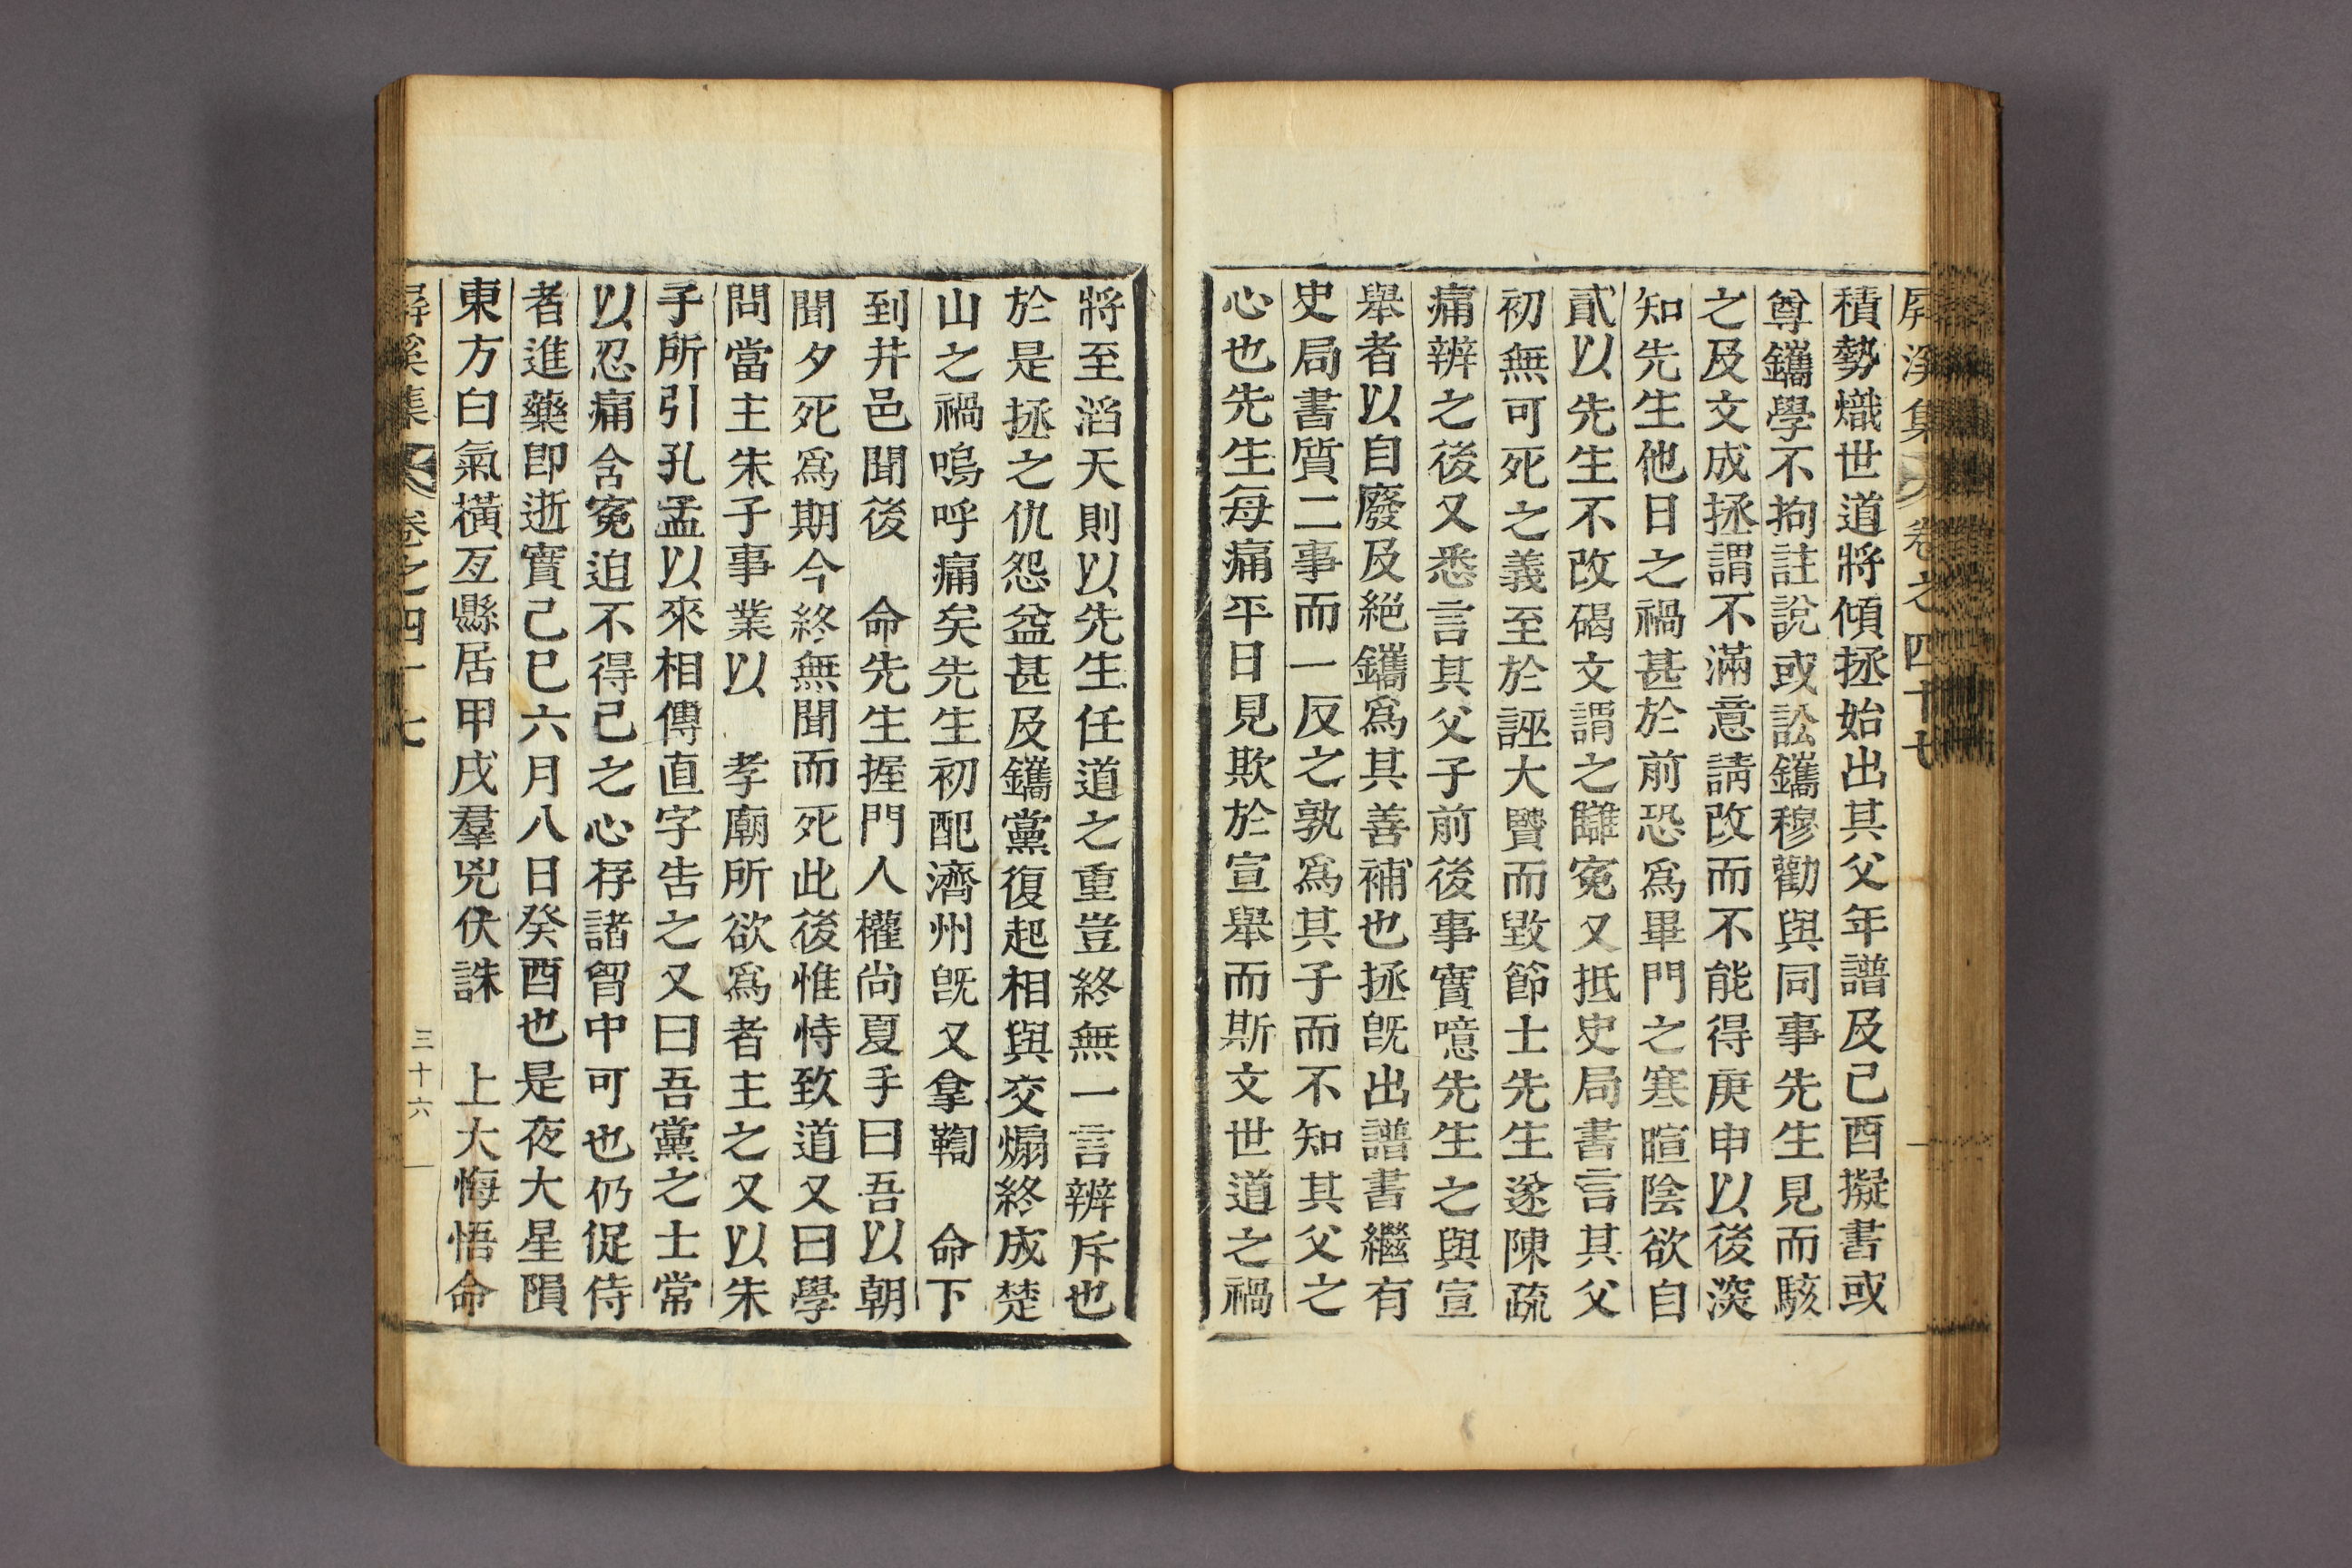 屛溪集 卷之四十七
積勢熾世道將傾拯始出其父年譜及己酉擬書或
尊鑴學不拘註說或訟鑴穆勸與同事先生見而駭
之及文成拯謂不滿意請改而不能得庚申以後深
知先生他日之禍甚於前恐爲畢門之寒暄陰欲自
貳以先生不改碣文謂之讎寃又抵史局書言其父
初無可死之義至於誣大賢而毀節士先生遂陳疏
痛辨之後又悉言其父子前後事實噫先生之與宣
舉者以自廢及絕鑴爲其善補也拯旣出譜書繼有
史局書質二事而一反之孰爲其子而不知其父之
心也先生每痛平日見欺於宣舉而斯文世道之禍
將至滔天則以先生任道之重豈終無一言辨斥也
於是拯之仇怨益甚及鑴黨復起相與交煽終成楚
山之禍嗚呼痛矣先生初配濟州旣又拿鞫 命下
到井邑聞後 命先生握門人權尚夏手曰吾以朝
聞夕死爲期今終無聞而死此後惟恃致道又曰學
問當主朱子事業以 孝廟所欲爲者主之又以朱
子所引孔孟以來相傳直字告之又曰吾黨之士常
以忍痛含寃迫不得已之心存諸胷中可也仍促侍
者進藥卽逝實己巳六月八日癸酉也是夜大星隕
東方白氣橫亙縣居甲戌羣兇伏誅 上大悔悟命
屛溪集 卷之四十七 三十六